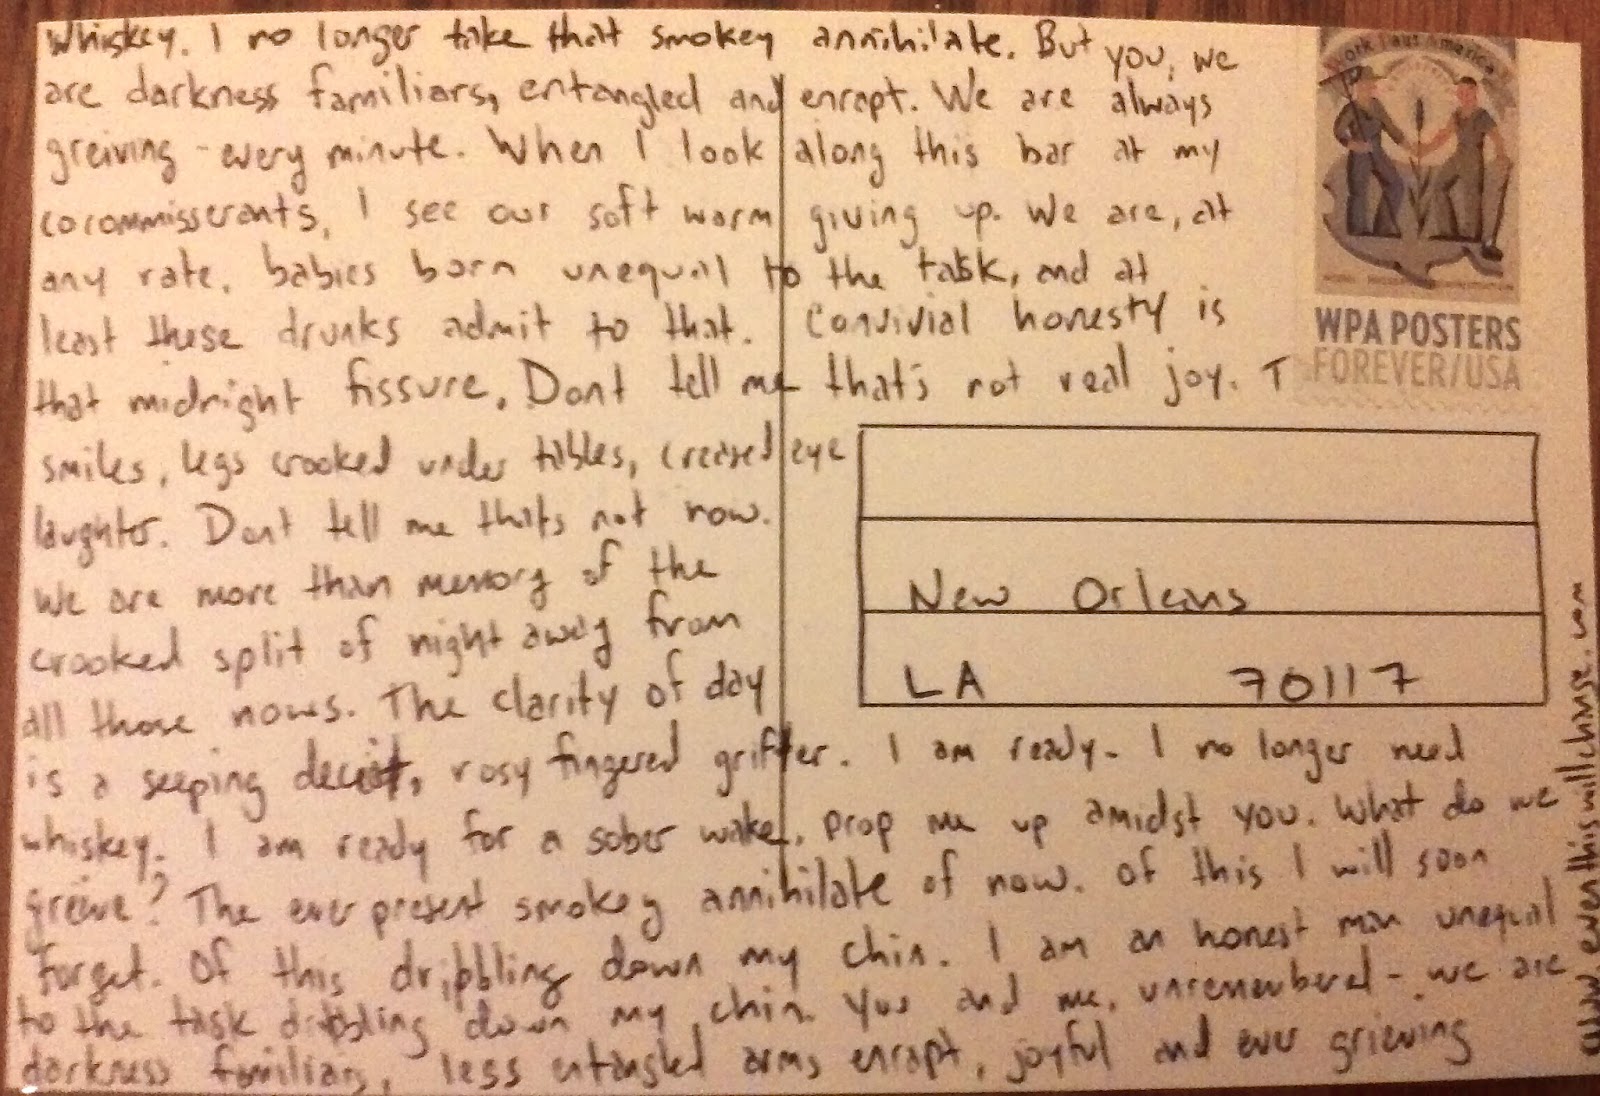 whiskey. I no longer take that smokey annihilate. But you, we
are darkness familiars, entangled and enrapt. We are always
greiving - every minute. When I look along this bar at my
cocommisserants, I see our soft warm giving up. We are, at
any rate, babies born unequal to the task, and at
least these drunks admit to that. Convivial honesty is
that midnight fissure. Dont tell me that's not real joy. T
smiles, legs crooked under tables, creased eye
laughter. Dont tell me thats not now.
We are more than memory of the
crooked split of night away from
all those nows. The clarity of day
is a seeping deceit, rosy fingered grifter. I am ready - I no longer need
whiskey. I am ready for a sober wake. Prop me up amidst you. What do we
greive? The ever present smokey annihilate of now. Of this I will soon
forget. Of this dribbling down my chin. I am an honest man unequal
to the task dribbling down my chin. You and me, unremembered - we are
darkness familiars, less entangled arms enrapt, joyful and ever grieving
Work Pays America
WPA POSTERS
FOREVER/USA
New Orleans
LA 70117
www.eventhiswillchange.com